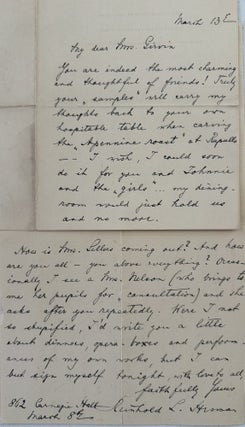 March 13th
My dear Mrs. Girvin
You are indeed the most charming
and thoughtful of friends! Truly
your „samples" will carry my
thoughts back to your own
hospitable table when carving
the „Apennine roast" at Rapallo
—— I wish, I could soon
do it for you and Johnnie
and the „girls" ... my dining-
room would just hold us
and no more.
Now is Mrs. Sellers coming out? And how
are you all – you above everything? Occas-
ionally I see a Mrs. Nelson (who brings to
me her pupils for „consultation") and she
asks after you repeatedly. Were I not
so stupified, I'd write you a little
about dinners, opera-boxes and perform-
ances of my own works, but I can
but sign myself tonight, with love to all,
faithfully Yours
862 Carnegie Hall
March 8th
Reinhold L. Herman